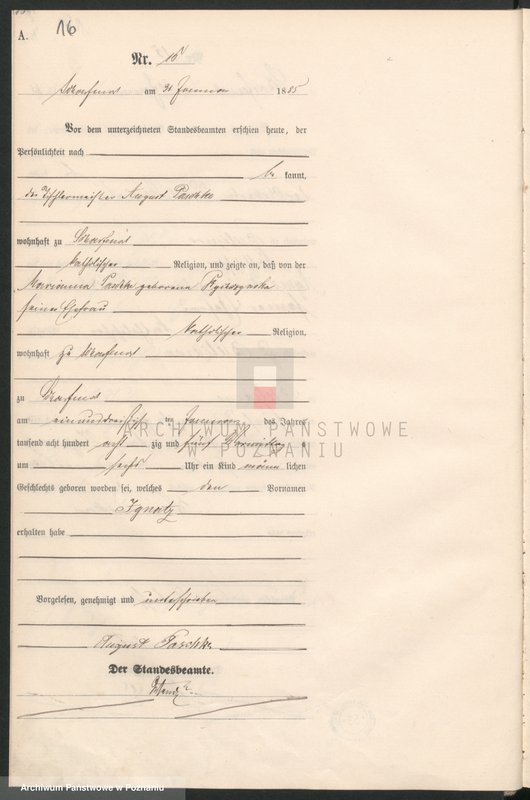 A. 16
Nr. 16
am 31 Januar 1885
Vor dem unterzeichneten Standesbeamten erschien heute, der
Persönlichkeit nach
be kannt,
der Tischlermeister August Paschke
wohnhaft zu
katholischer Religion, und zeigte an, daß von der
Marianna Paschke geborene
seiner Ehefrau
katholischer Religion,
wohnhaft zu
zu
am einunddreißigsten Januar des Jahres
tausend acht hundert acht zig und fünf Vormittags
um sechs Uhr ein Kind männ lichen
Geschlechts geboren worden sei, welches den Vornamen
Ignatz
erhalten habe
Vorgelesen, genehmigt und unterschrieben
August Paschke
Der Standesbeamte.
ARCHIWUM PAŃSTWOWE
W POZNANIU
Archiwum Państwowe w Poznaniu